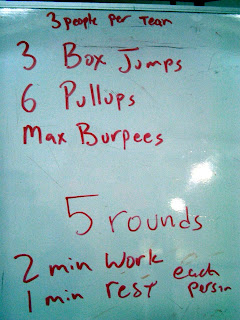 3 people per Team
3 Box Jumps
6 Pullups
Max Burpees
5 rounds
2 min work each
1 min rest person